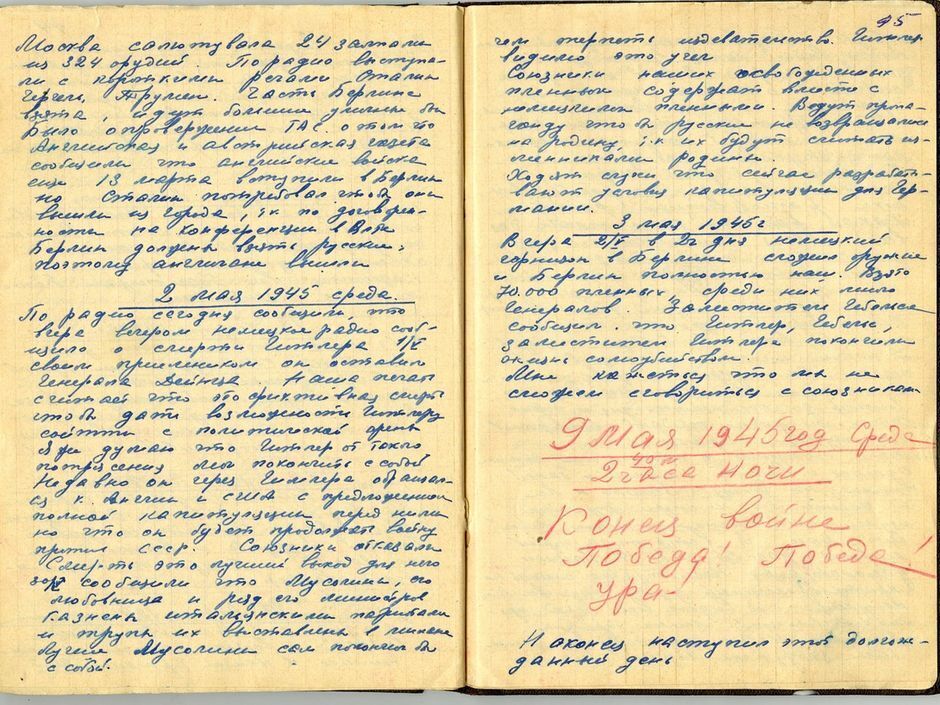 Москва салютувала 24 залпами
из 324 орудий. По радио выступа-
ли с короткими речами Сталин
Черчель, Трумен. Часть Берлина
взята, идут большие уличные бои
Было опровержении ТАС. о том что
Английская и австрийская газета
сообщили что английские войска
еще 13 марта вступили в Берлин
но Сталин потребовал чтоб они
вышли из города, т.к. по договорен-
ности на конференции в Ялте
Берлин должны взять русские,
поэтому англичане вышли
2 мая 1945 среда.
По радио сегодня сообщили, что
вчера вечером немецкое радио сооб-
щило о смерти Гитлера 1/V
своим приемником он оставил
Генерала Дейница Наша печать
считает что это фиктивная смерть
чтоб дать возможность Гитлеру
сойти с политической арены
Я же думаю что Гитлер от такого
потрясения мог покончить с собой
Недавно он через Гимлера обращал-
ся к Англии и США с предложением
полной капитуляции перед ними
но что он будет продолжать войну
против СССР. Союзники отказали
Смерть это лучший выход для него
сообщили что Мусолини, его
любовница и ряд его министров
казнены итальянскими партизанами
и трупы их выставлены в Милане
Лучше Мусолини сам покончил бы
с собой.
95
чем терпеть издевательство. Гитлер
видимо это учел
Союзники наших освобожденных
пленных содержат вместе с
немецкими пленными. Ведут пропа-
ганду что бы русские не возвращались
на родину, т.к. их будут считать из-
менниками родины.
Ходят слухи что сейчас разрабаты-
вают условия капитуляции для Гер-
мании.
3 мая 1945г
Вчера 2/V в 2ч дня немецкий
горнизон в Берлине сложил оружие
и Берлин полностью наш. Взято
70.000 пленных, среди них много
Генералов. Заместитель Гебельса
сообщил что Гитлер, Гебельс,
заместитель Гитлера покончили
жизнь самоубийством!
Мне кажеться что мы не
сможем сговориться с союзниками
9 мая 1945 год Среда
2 часа 40 м ночи
Конец войне
Победа! Победа!
Ура-
Наконец наступил этот долгож-
данный день